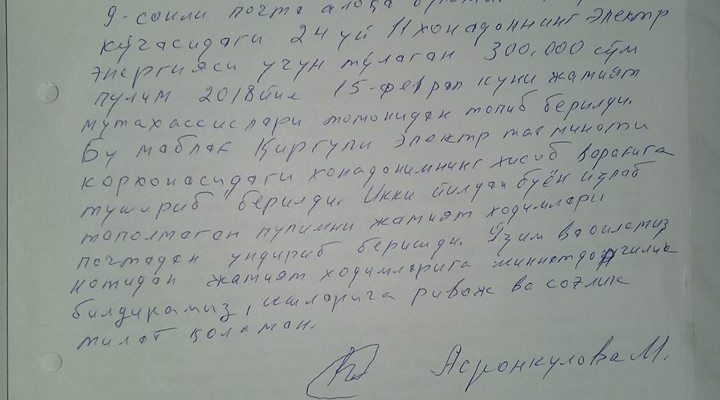 9-сонли почта алоқа
кўчасидаги 24 уй 11 хонадоннинг электр
энергияси учун тўлаган 300,000 сўм
пулим 2018 йил 15-феврал куни жамият
мутахассислари томонидан топиб берилди.
Бу маблағ Қирғули электр таъминоти
корхонасидаги хонадонимнинг хисоб варағига
тушириб берилди. Икки йилдан буён излаб
тополмаган пулимни жамият ходимлари
почтадан ундириб беришди. Ўзим ва оиламиз
номидан жамият ходимларига миннатдорчилик
билдирамиз, ишларига ривож ва соғлик
тилаб қоламан.
Асронкулова М.